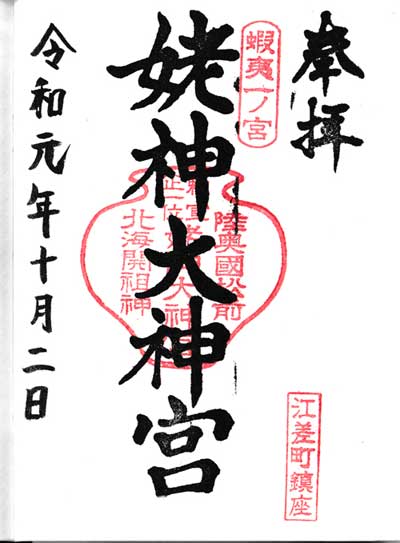 奉拝
蝦夷一ノ宮
姥神大神宮
陸奥國松前
北海開祖神
江差町鎮座
令和元年十月二日